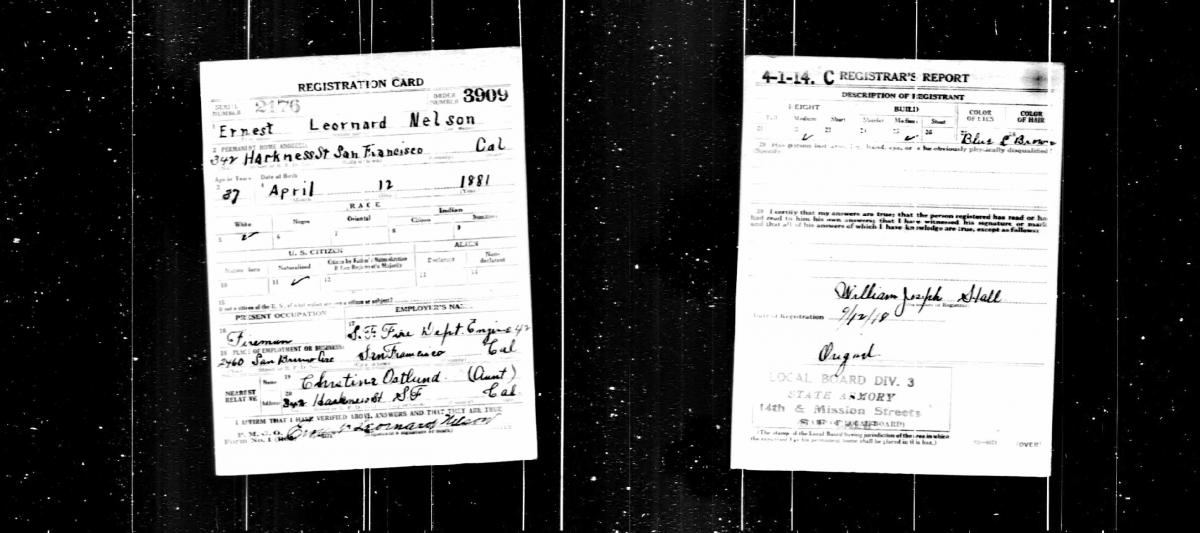 REGISTRATION CARD
SERIAL NUMBER 2176 ORDER NUMBER 3909
1 Ernest Leornard Nelson
2 PERMANENT HOME ADDRESS
342 Harkness St San Francisco Cal
Age in Years Date of Birth
3 37 4 April 12 1881
RACE
White Negro Oriental Indian
Citizen
5 ✓ 6 7 8 9
U. S. CITIZEN ALIEN
Native Born Naturalized Citizen by Father's Naturalization Before Registrant's Majority Declarant Non-declarant
10 11 ✓ 12 13 14
15
If not a citizen of the U. S., of what nation are you a citizen or subject?
PRESENT OCCUPATION EMPLOYER'S NAME
16 Fireman 17 S.F. Fire Dept. Engine 42
18 PLACE OF EMPLOYMENT OR BUSINESS
2460 San Bruno Ave San Francisco Cal
NEAREST RELATIVE
Name 19 Christina Ostlund (Aunt)
Address 20 342 Harkness St S F Cal
I AFFIRM THAT I HAVE VERIFIED ABOVE ANSWERS AND THAT THEY ARE TRUE
P. M. G. O.
Form No. 1 Ernest Leornard Nelson
4-1-14. C REGISTRAR'S REPORT
DESCRIPTION OF REGISTRANT
HEIGHT BUILD COLOR OF EYES COLOR OF HAIR
Tall Medium Short Slender Medium Stout
21 22 ✓ 23 24 25 ✓ 26 27 Blue 28 Brown
29 Has person lost arm, leg, hand, eye, or is he obviously physically disqualified?
(Specify)
30 I certify that my answers are true; that the person registered has read or has
had read to him his own answers; that I have witnessed his signature or mark
and that all of his answers of which I have knowledge are true, except as follows:
William Joseph Stall
Date of Registration 9/12/18
LOCAL BOARD DIV. 3
STATE ARMORY
14th & Mission Streets
(STAMP OF LOCAL BOARD)
(The stamp of the Local Board having jurisdiction of the area in which
the registrant has his permanent home shall be placed in this box.)
(OVER)